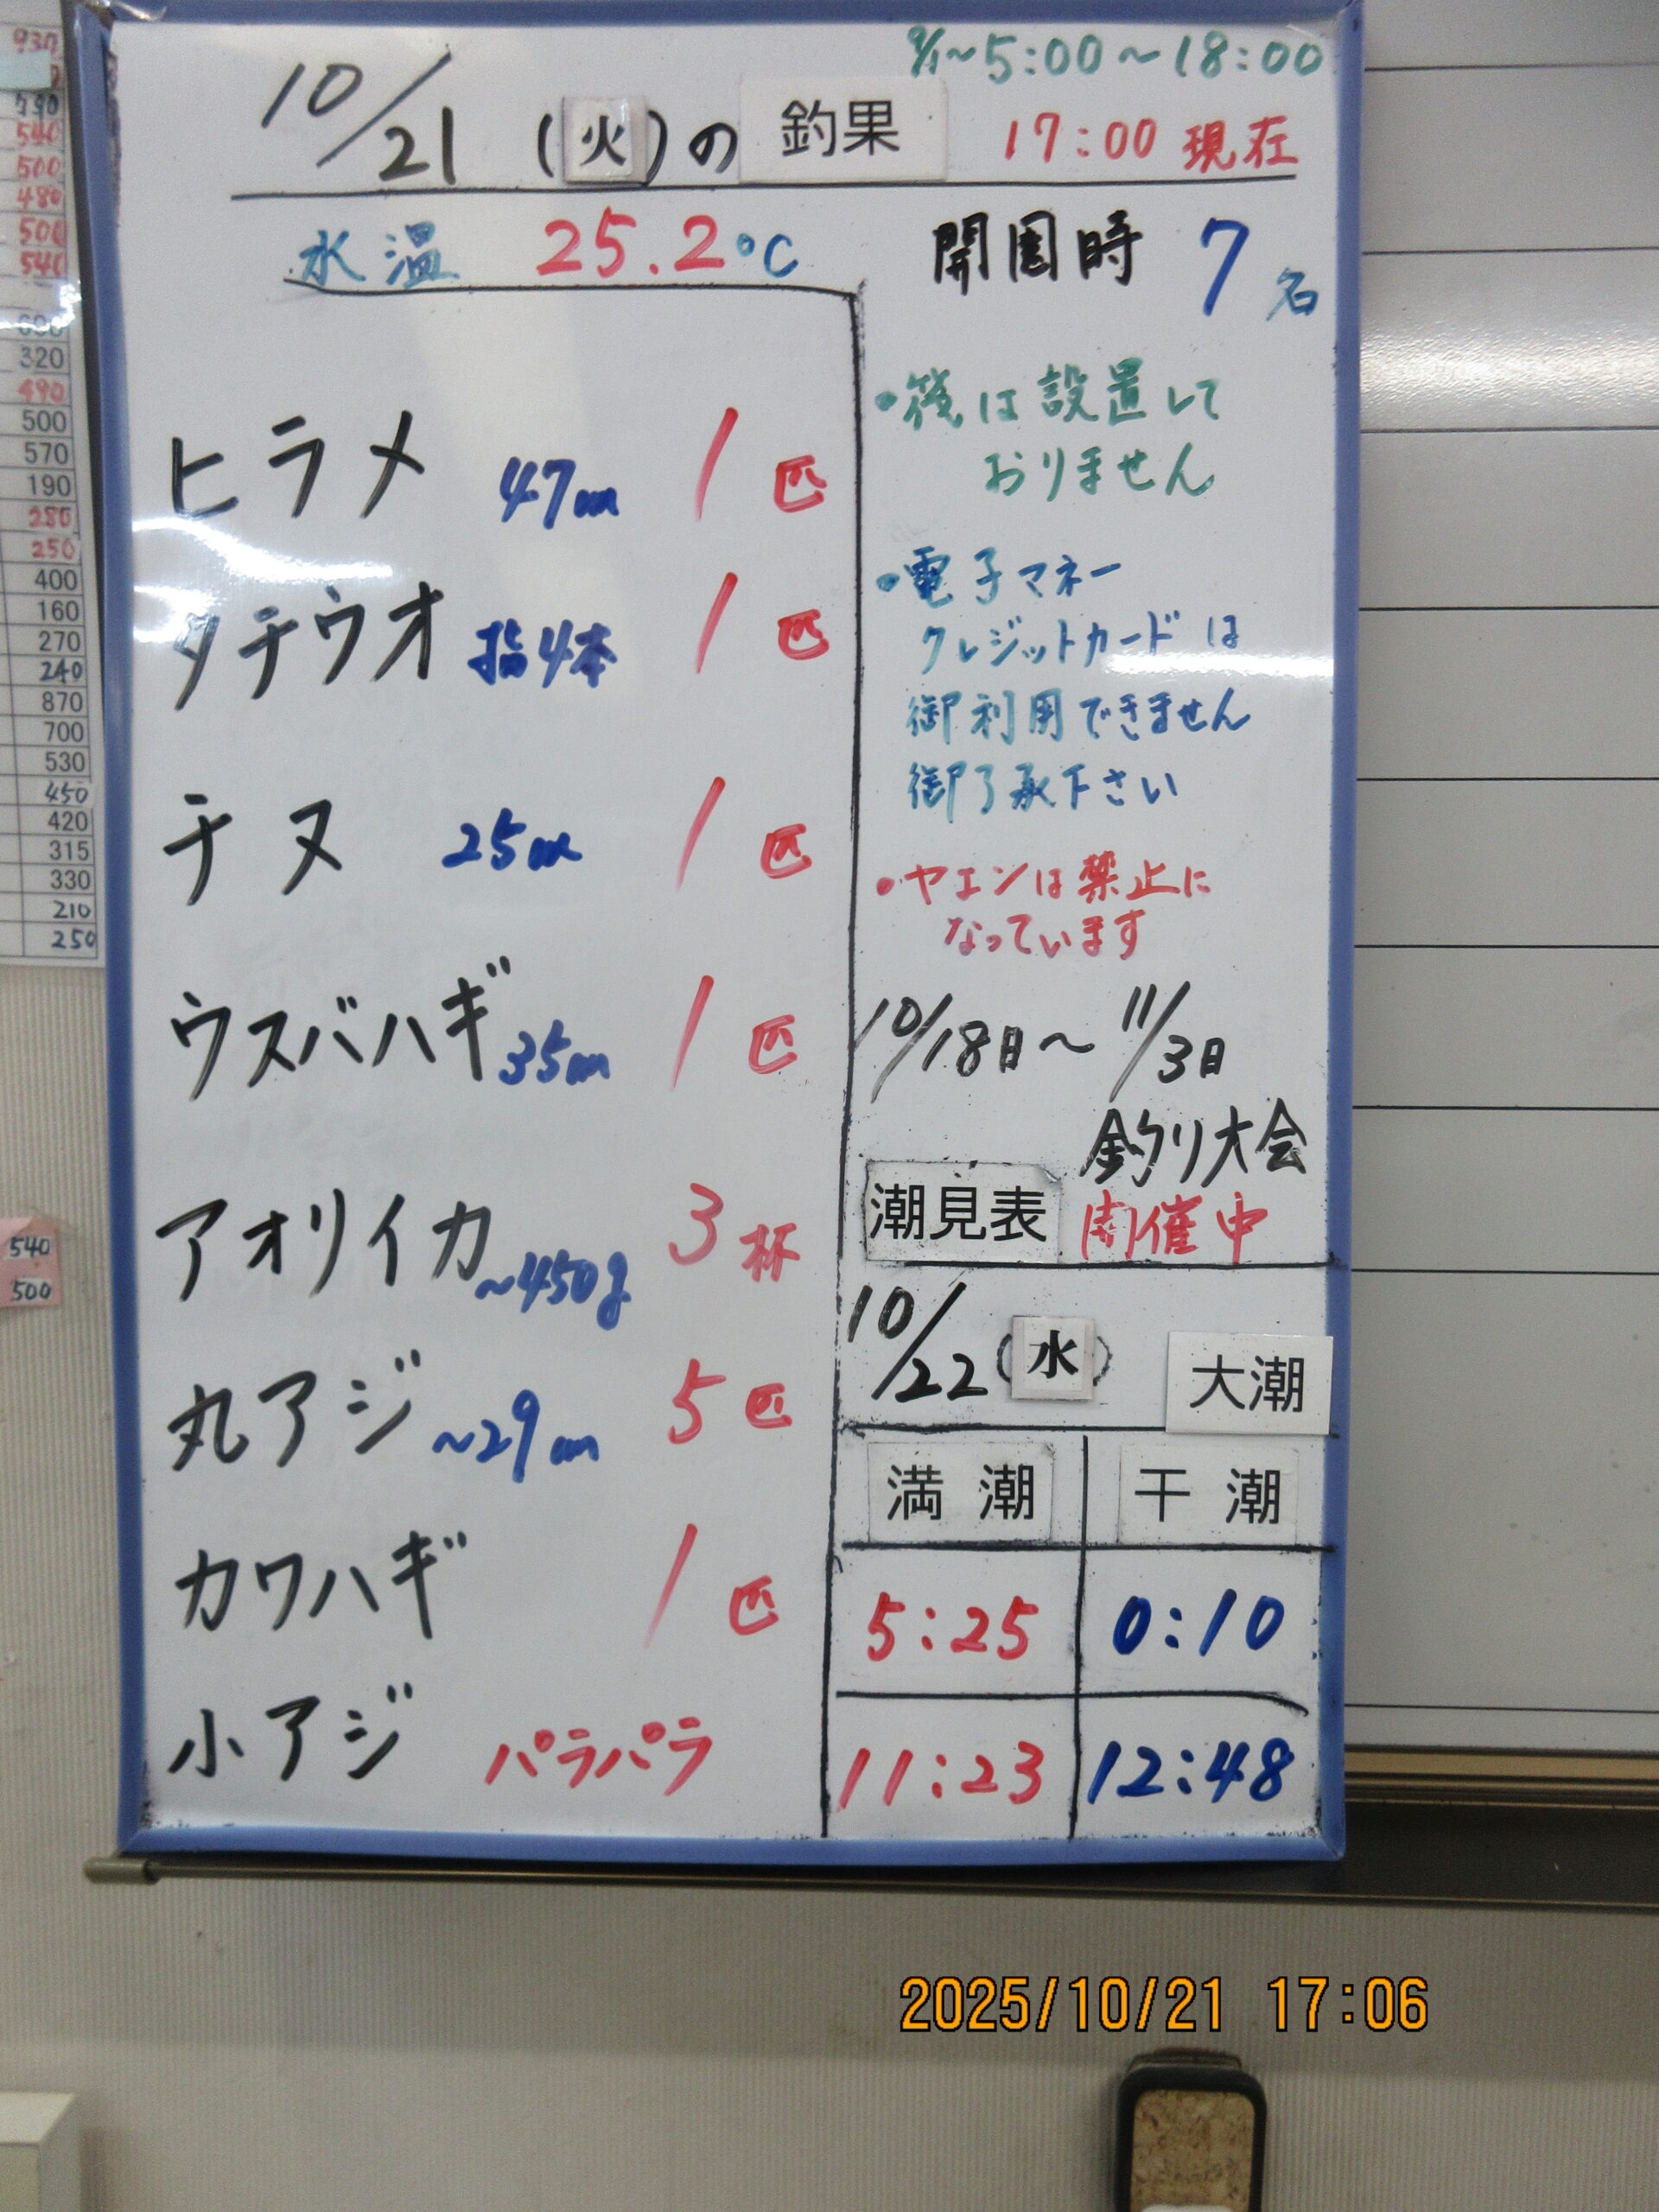 9/1～5:00～18:00
10/21 (火)の 釣果 17:00 現在
水温 25.2℃
開園時 7名
ヒラメ 47cm 1匹
タチウオ 指4本 1匹
チヌ 25cm 1匹
ウスバハギ 35cm 1匹
アオリイカ ～450g 3杯
丸アジ ～29cm 5匹
カワハギ 1匹
小アジ パラパラ
・筏は設置して
おりません
・電子マネー
クレジットカードは
御利用できません
御了承下さい
・ヤエンは禁止に
なっています
10/18日～11/3日
釣り大会
開催中
潮見表
10/22 (水) 大潮
満潮 干潮
5:25 0:10
11:23 12:48
790
540
500
480
500
540
320
490
500
570
190
280
250
400
160
270
240
870
700
530
450
420
315
330
210
250
540
500
2025/10/21 17:06